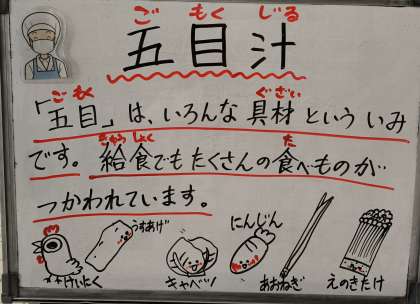 ごもくじる
五目汁
ごもく ぐざい
「五目」は、いろんな具材といういみ
きゅうしょく た
です。給食でもたくさんの食べものが
つかわれています。
けいにく うすあげ キャベツ にんじん あおねぎ えのきたけ